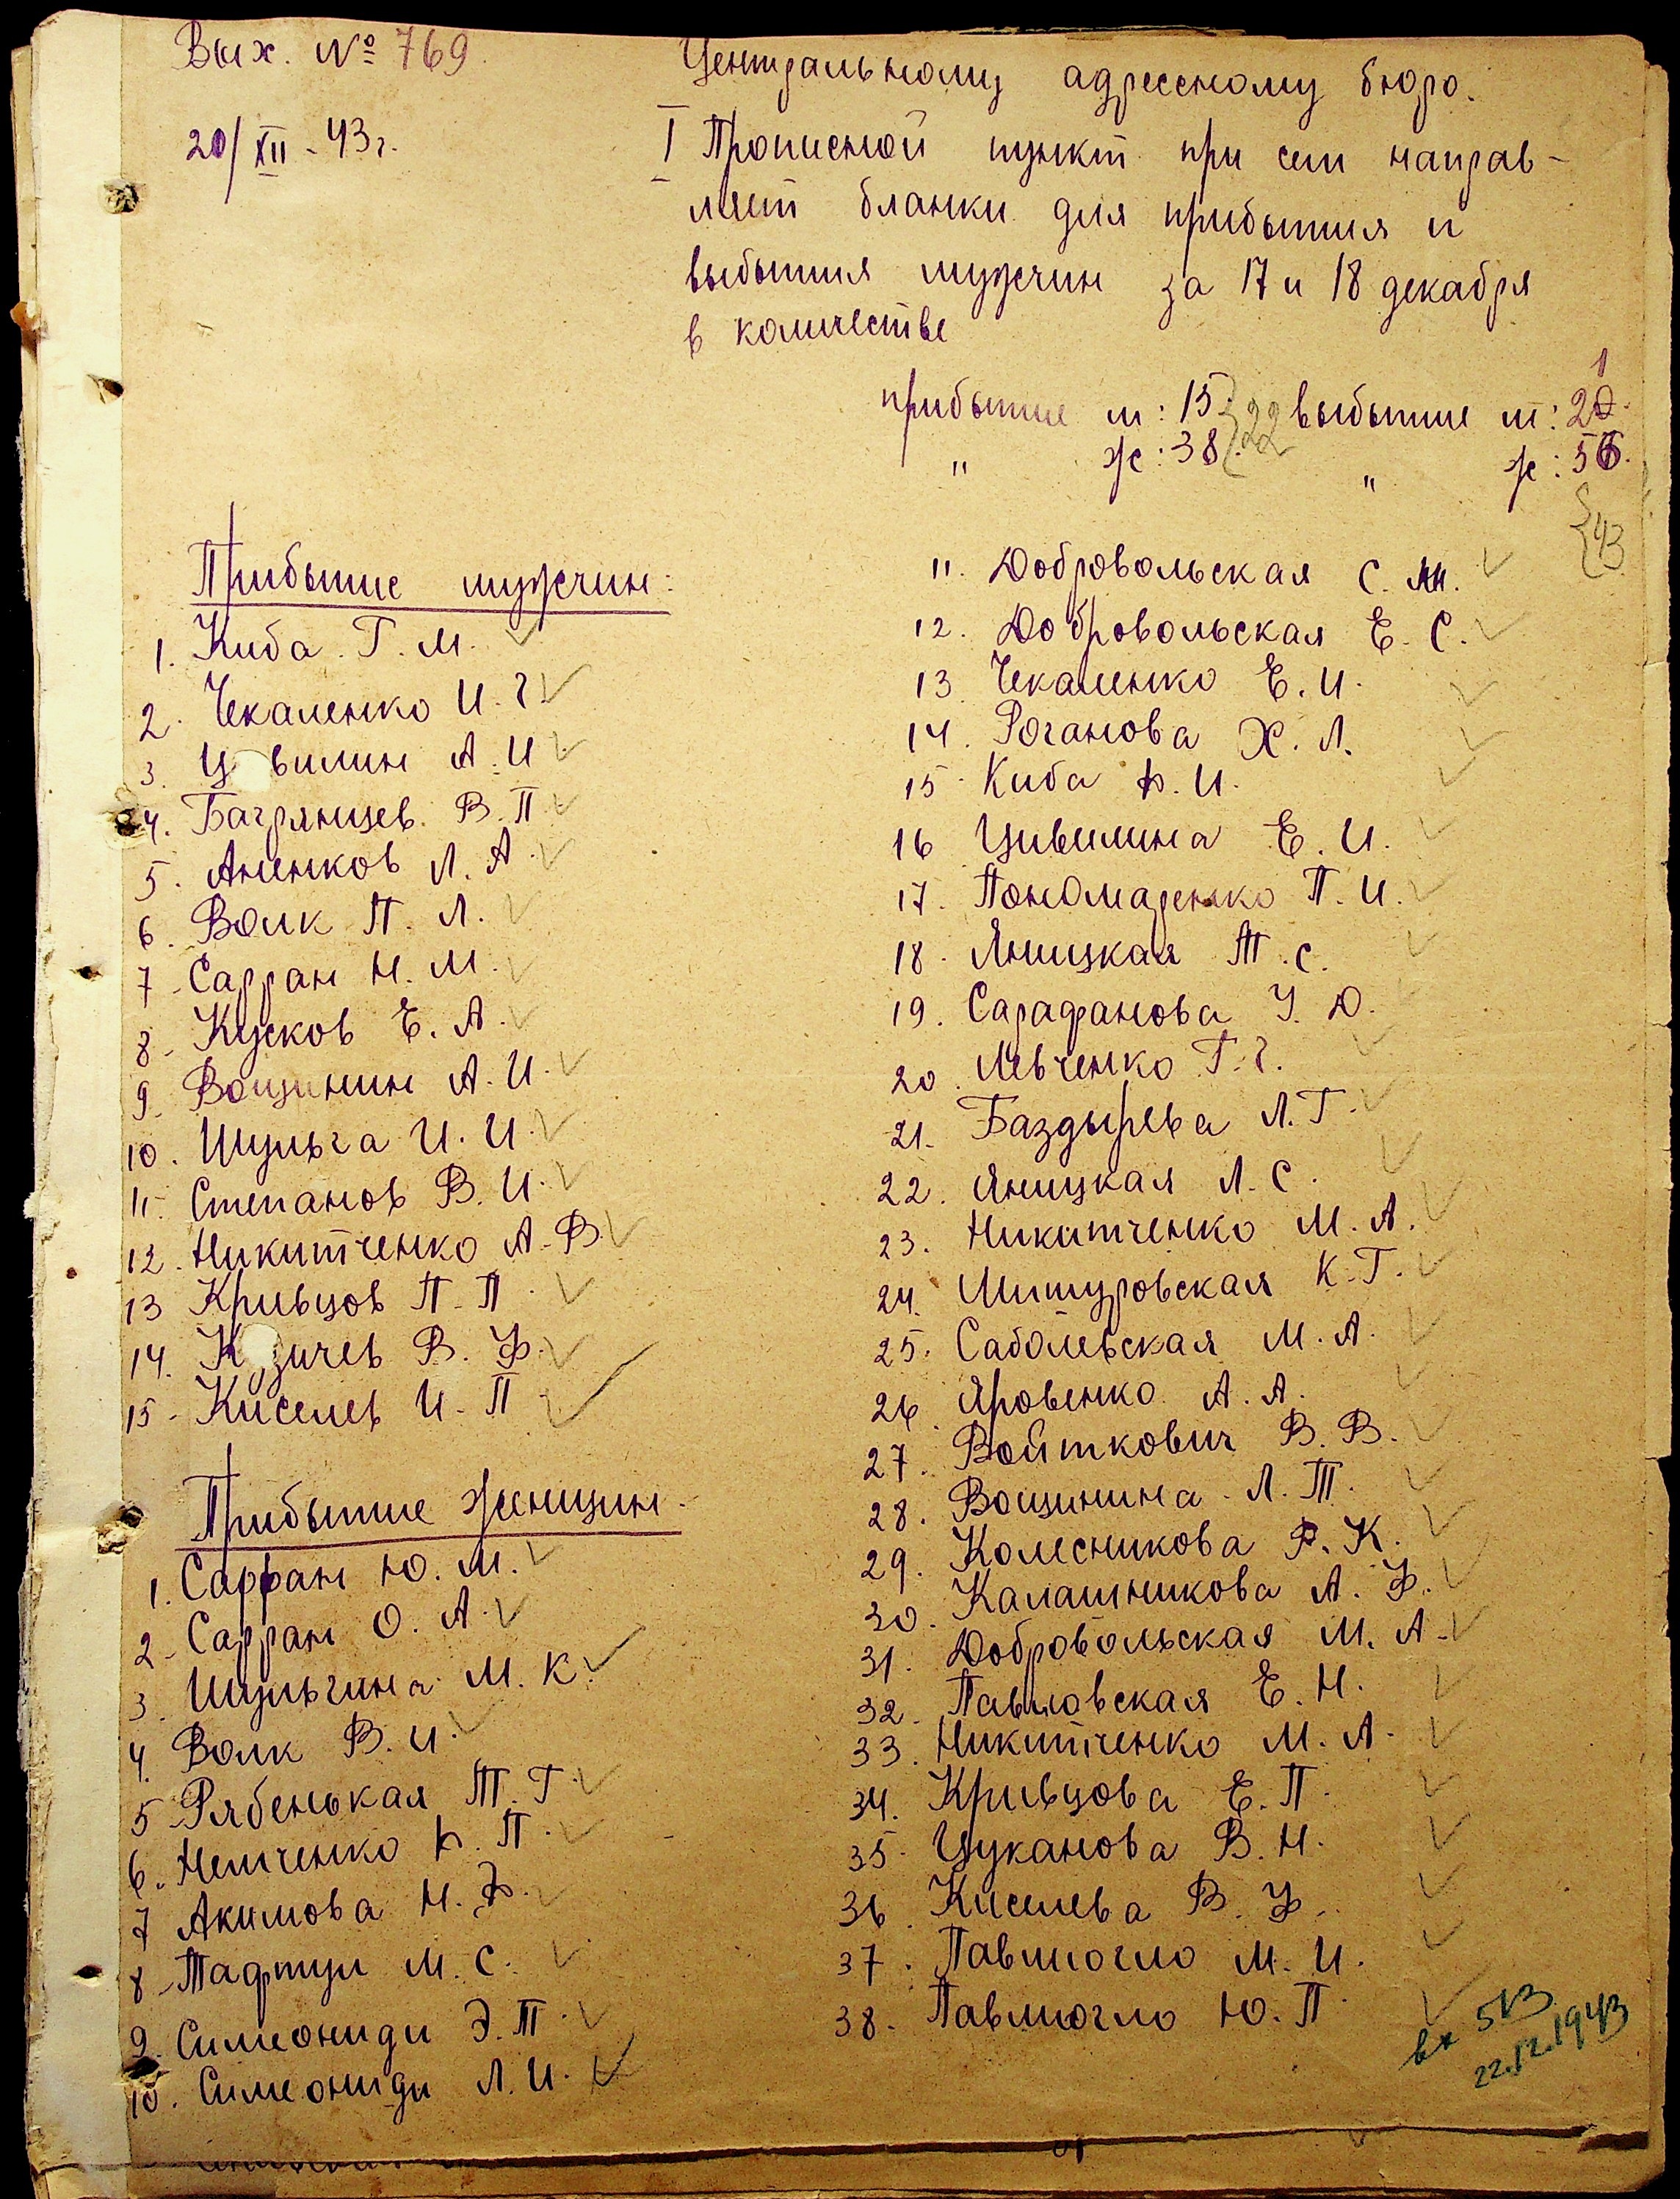 Вых. № 769.
20/XII - 43 г.
Центральному адресному бюро.
I Прописной пункт при сем направ-
ляет бланки для прибытия и
выбытия мужчин за 17 и 18 декабря
в количестве
прибытие м: 15. выбытие м: 20.
" ж: 38. 22 " ж: 56.
1
43
Прибытие мужчин:
1. Киба Г. М.
2. Чекаленко И. Г.
3. Ц вилин А. И
4. Багрянцев В. П.
5. Аненков Л. А.
6. Волк П. Л.
7. Сарран Н. М.
8. Кусков Е. А.
9. Вощинин А. И.
10. Шульга И. И.
11. Степанов В. И.
12. Никитченко А. В.
13 Кривцов П. П.
14. К зичев В. Ф.
15. Киселев И. П.
Прибытие женщин.
1. Сарран Ю. М.
2. Сарран О. А.
3. Шульгина М. К.
4. Волк В. И.
5. Рябенькая Т. Г.
6. Немченко П.
7 Акимова Н. Ф.
8. Тафтул М. С.
9. Симеониди Э. П.
10. Симеониди Л. И.
11. Добровольская С. М.
12. Добровольская Е. С.
13 Чекаленко Е. И.
14. Роганова Х. Л.
15. Киба Ф. И.
16 Цивилина Е. И.
17. Пономаренко П. И.
18. Яницкая Т. С.
19. Сарафанова У. Д.
20. Левченко Г. Г.
21. Баздырева Л. Г.
22. Яницкая Л. С.
23. Никитченко М. А.
24. Шишуровская К. Г.
25. Саболевская М. А.
26. Яровенко А. А.
27. Войткович В. В.
28. Вощинина Л. Т.
29. Колесникова Р. К.
30. Калашникова А. Ф.
31. Добровольская М. А.
32. Павловская Е. Н.
33. Никитченко М. А.
34. Кривцова Е. П.
35. Цуканова В. Н.
36. Киселева В. Ф.
37. Павлиогло М. И.
38. Павлиогло Ю. П.
вх 513
22.12.1943